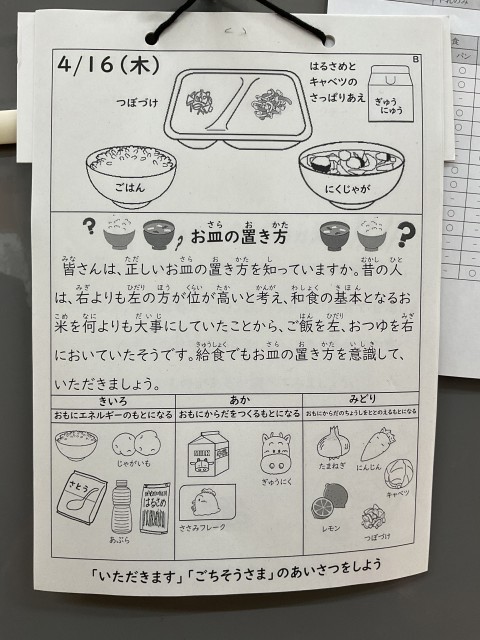 4/16(木)
B
つぼづけ
はるさめと
キャベツの
さっぱりあえ
ぎゅう
にゅう
ごはん
にくじゃが
お皿の置き方
皆さんは、正しいお皿の置き方を知っていますか。昔の人
は、右よりも左の方が位が高いと考え、和食の基本となるお
米を何よりも大事にしていたことから、ご飯を左、おつゆを右
においていたそうです。給食でもお皿の置き方を意識して、
いただきましょう。
きいろ
おもにエネルギーのもとになる
あか
おもにからだをつくるもとになる
みどり
おもにからだのちょうしをととのえるもとになる
じゃがいも
さとう
あぶら
はるさめ
MILK
ぎゅうにく
ささみフレーク
たまねぎ
にんじん
キャベツ
レモン
つぼづけ
「いただきます」「ごちそうさま」のあいさつをしよう
パン